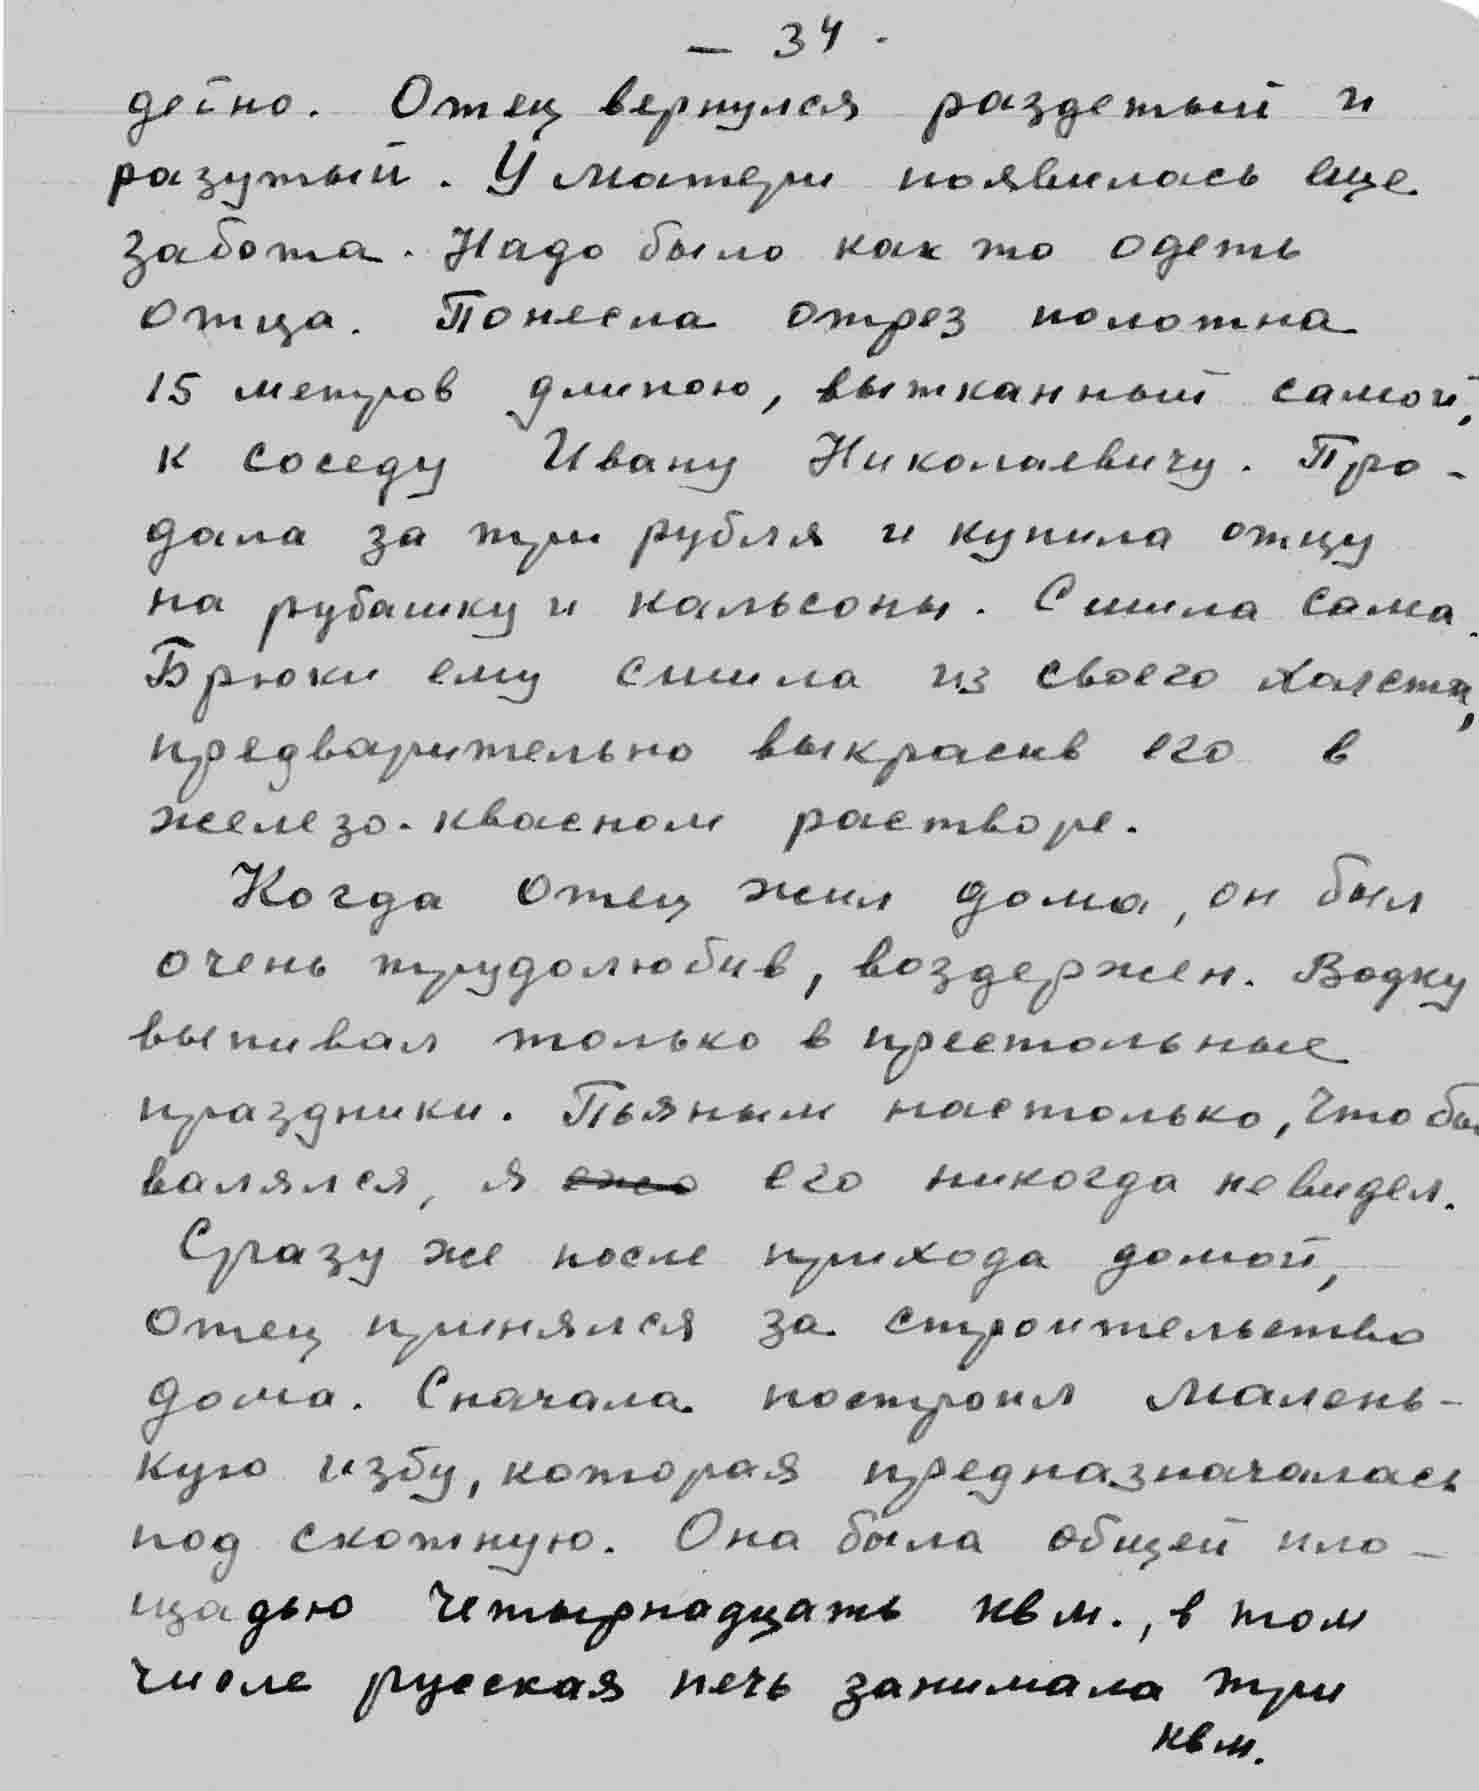 — 34 -
дейно. Отец вернулся раздетый и
разутый. У матери появилась еще
забота. Надо было как то одеть
отца. Понесла отрез полотна
15 метров длиною, вытканный самой,
к соседу Ивану Николаевичу. Про-
дала за три рубля и купила отцу
на рубашку и кальсоны. Сшила сама.
Брюки ему сшила из своего холста,
предварительно выкрасив его в
железо-квасном растворе.
Когда отец жил дома, он был
очень трудолюбив, воздержен. Водку
выпивал только в престольные
праздники. Пьяным настолько, что бы
валялся, я его никогда не видел.
Сразу же после прихода домой,
отец принялся за строительство
дома. Сначала построил малень-
кую избу, которая предназначалась
под скотную. Она была общей пло-
щадью четырнадцать кв м., в том
числе русская печь занимала три
кв м.